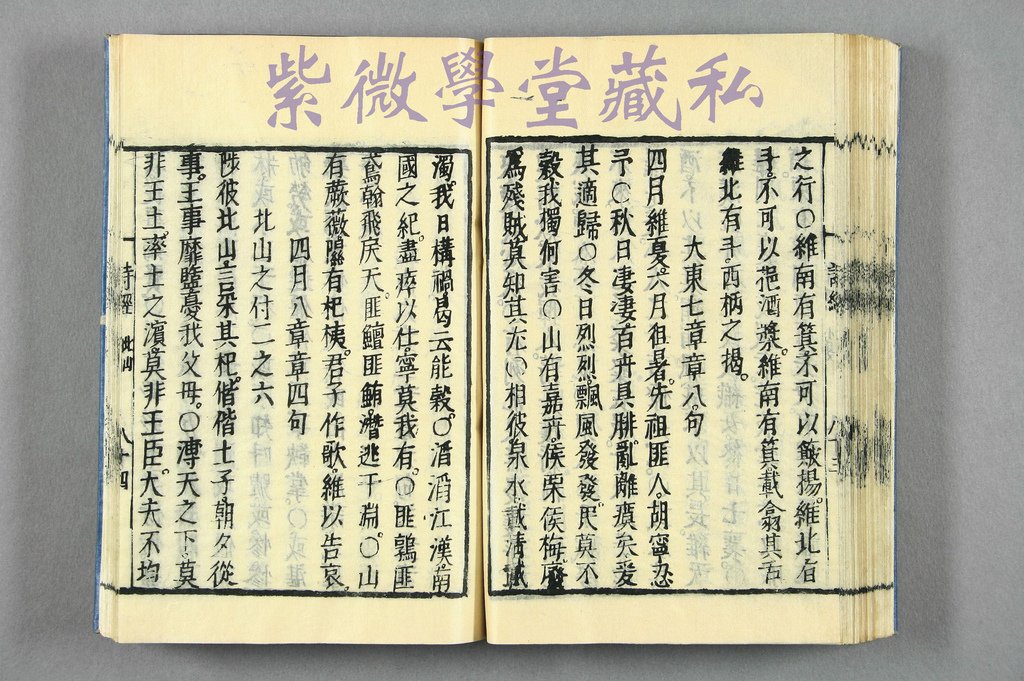 紫微學堂藏私
詩經
之行○維南有箕不可以簸揚。維北有
斗。不可以挹酒漿。維南有箕載翕其舌
維北有斗西柄之揭。
大東七章章八句
四月維夏。六月徂暑。先祖匪人。胡寧忍
予○秋日凄凄百卉具腓。亂離瘼矣爰
其適歸○冬日烈烈飄風發發。民莫不
穀我獨何害○山有嘉卉。侯栗侯梅。廢
爲殘賊莫知其尤○相彼泉水。載清載
濁。我日構禍曷云能穀○滔滔江漢南
國之紀。盡瘁以仕寧莫我有。○匪鶉匪
鳶翰飛戾天。匪鱣匪鮪。潛逃于淵○山
有蕨薇隰有杞桋。君子作歌維以告哀
四月八章章四句
北山之付二之六
陟彼北山言采其杞。偕偕士子朝夕從
事。王事靡盬憂我父母。○溥天之下。莫
非王土。率土之濱。莫非王臣。大夫不均
詩經 八十四